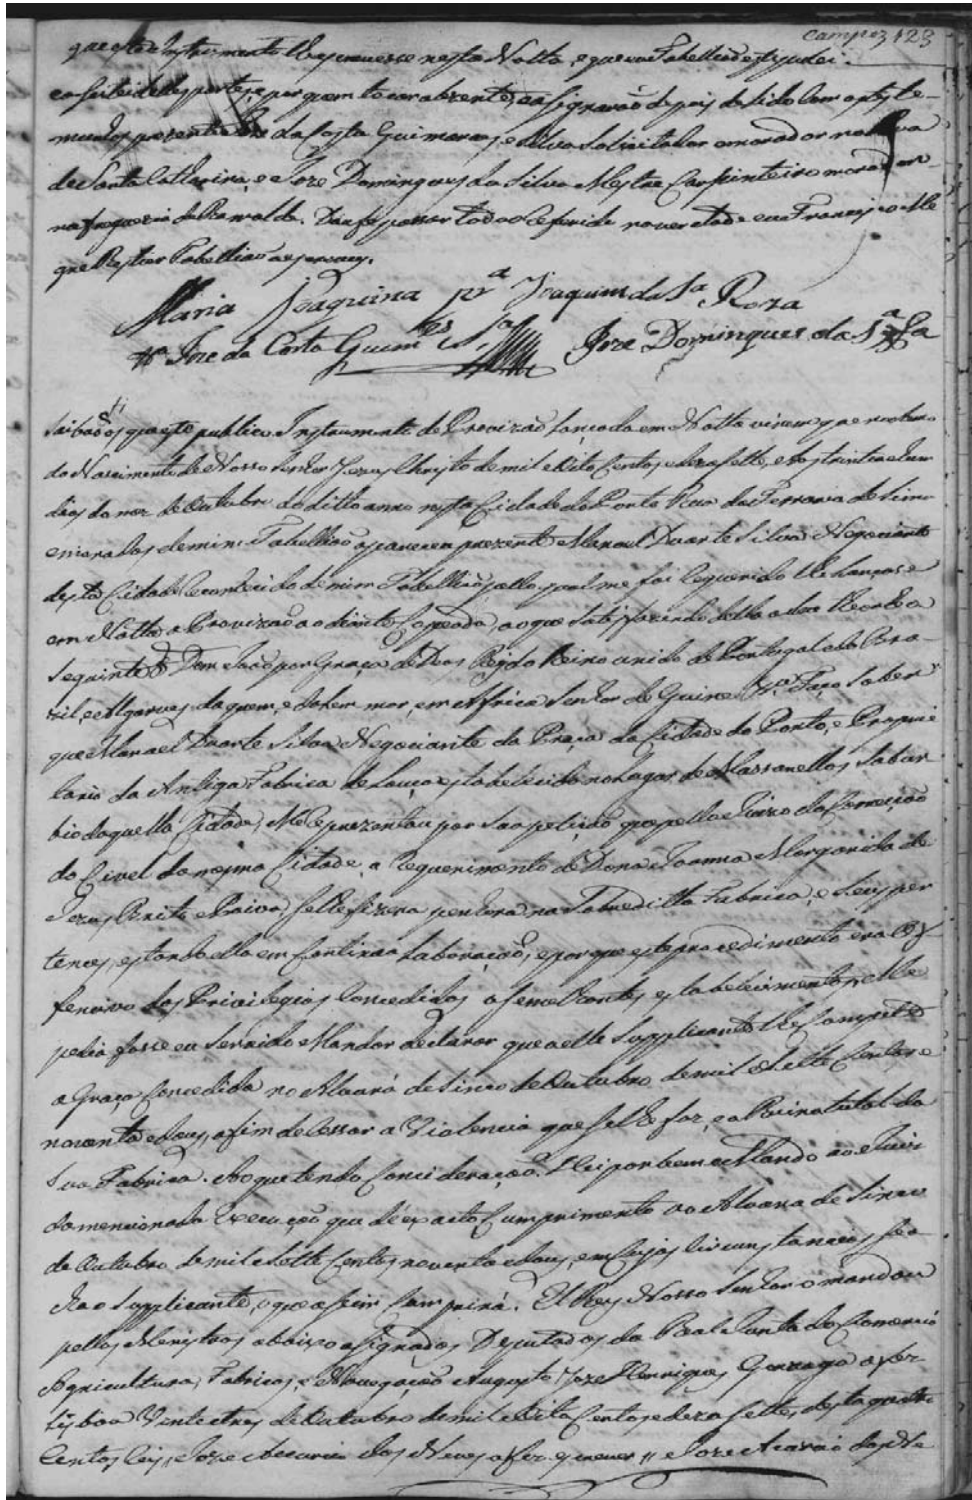 Campos 123
que este Instrumento lhe escrevesse nesta Notta, e que eu Tabellião estipulei
e aseitei de les partes, e por quem tocar absente, e asignarão depois de lido com as teste-
munhas prezentes Joze da Costa Guimaraes, e Silva Solicitador e morador na Rua
de Santa Catharina, e Joze Domingues da Silva Mestre Carpinteiro morador
na freguezia de Ramalde. Dou fe passar todo o referido na verdade e eu Francisco Me
que Restier Tabellião o escrevy.
Maria Joaquina pr.ª Joaquim da S.ª Roza
Joze da Costa Guim.es S.ª Joze Domingues da S.ª
Saibão os que este publico Instrumento de Provizão lançada em Notta virem que no Anno
do Nascimento de Nosso Senhor Jezus Christo de mil e Oito Centos e dezasette, e aos trinta e hum
dias do mez de Outubro do ditto anno nesta Cidade do Porto Rua da Ferraria de Sima
e morada de mim Tabellião apareceu prezente Manoel Duarte Silva Negociante
desta Cidade Reconhecido de mim Tabellião pello qual me foi Requerido lhe Lançase
em Notta a Provizão ao diante Copeada, ao que satisfazendo della a sua theor he a
seguinte Dom João por Graça de Deos Rey do Reino unido de Portugal e do Bra-
zil, e Algarves, daquem, e dalem mar, em Africa Senhor de Guine &.ª Faço Saber
que Manoel Duarte Silva Negociante da Praça da Cidade do Porto, e Proprie
tario da Antiga Fabrica de Louça estabelecida no Lugar de Massarellos Subur
bio daquella Cidade, Me Reprezentou por sua petição que pello Juizo da Correição
do Civel da mesma Cidade, a Requerimento de Dona Joanna Margarida de
Jezus Brito e Paiva, se lhe fizera penhora na Sobreditta Fabrica, e Seus per
tences, estando ella em Continua Laboração, e porque este procedimento era Of
fensivo dos Privilegios Concedidos a semelhantes estabelecimentos, Me
pedia fosse eu Servido Mandar declarar que a elle Supplicante lhe Competia
a Graça Concedida no Alvará de Sinco de Outubro de mil e Sette Centos e
noventa e dous, afim de Cessar a Violencia que se lhe faz, e a Ruina total da
Sua Fabrica. Ao que tendo Concideração: Hei por bem e Mando ao Juiz
da mencionada Execução que dê exacto Cumprimento ao Alvara de Sinco
de Outubro de mil e Sette Centos noventa e dous, em Cujas Circunstancias se a
cha o Supplicante, o que asim Cumprirá. El Rey Nosso Senhor o mandou
pellos Menistros abaixo asignados Deputados da Real Junta do Comercio
Agricultura, Fabricas, e Navegação Augusto Joze Henriques Gonzaga a fez
Lisboa Vinte e tres de Outubro de mil e Oito Centos e dezasette, desta quatro
Centos Reis, Joze Accursio das Neves a fez escrever // Joze Acursio das Ne